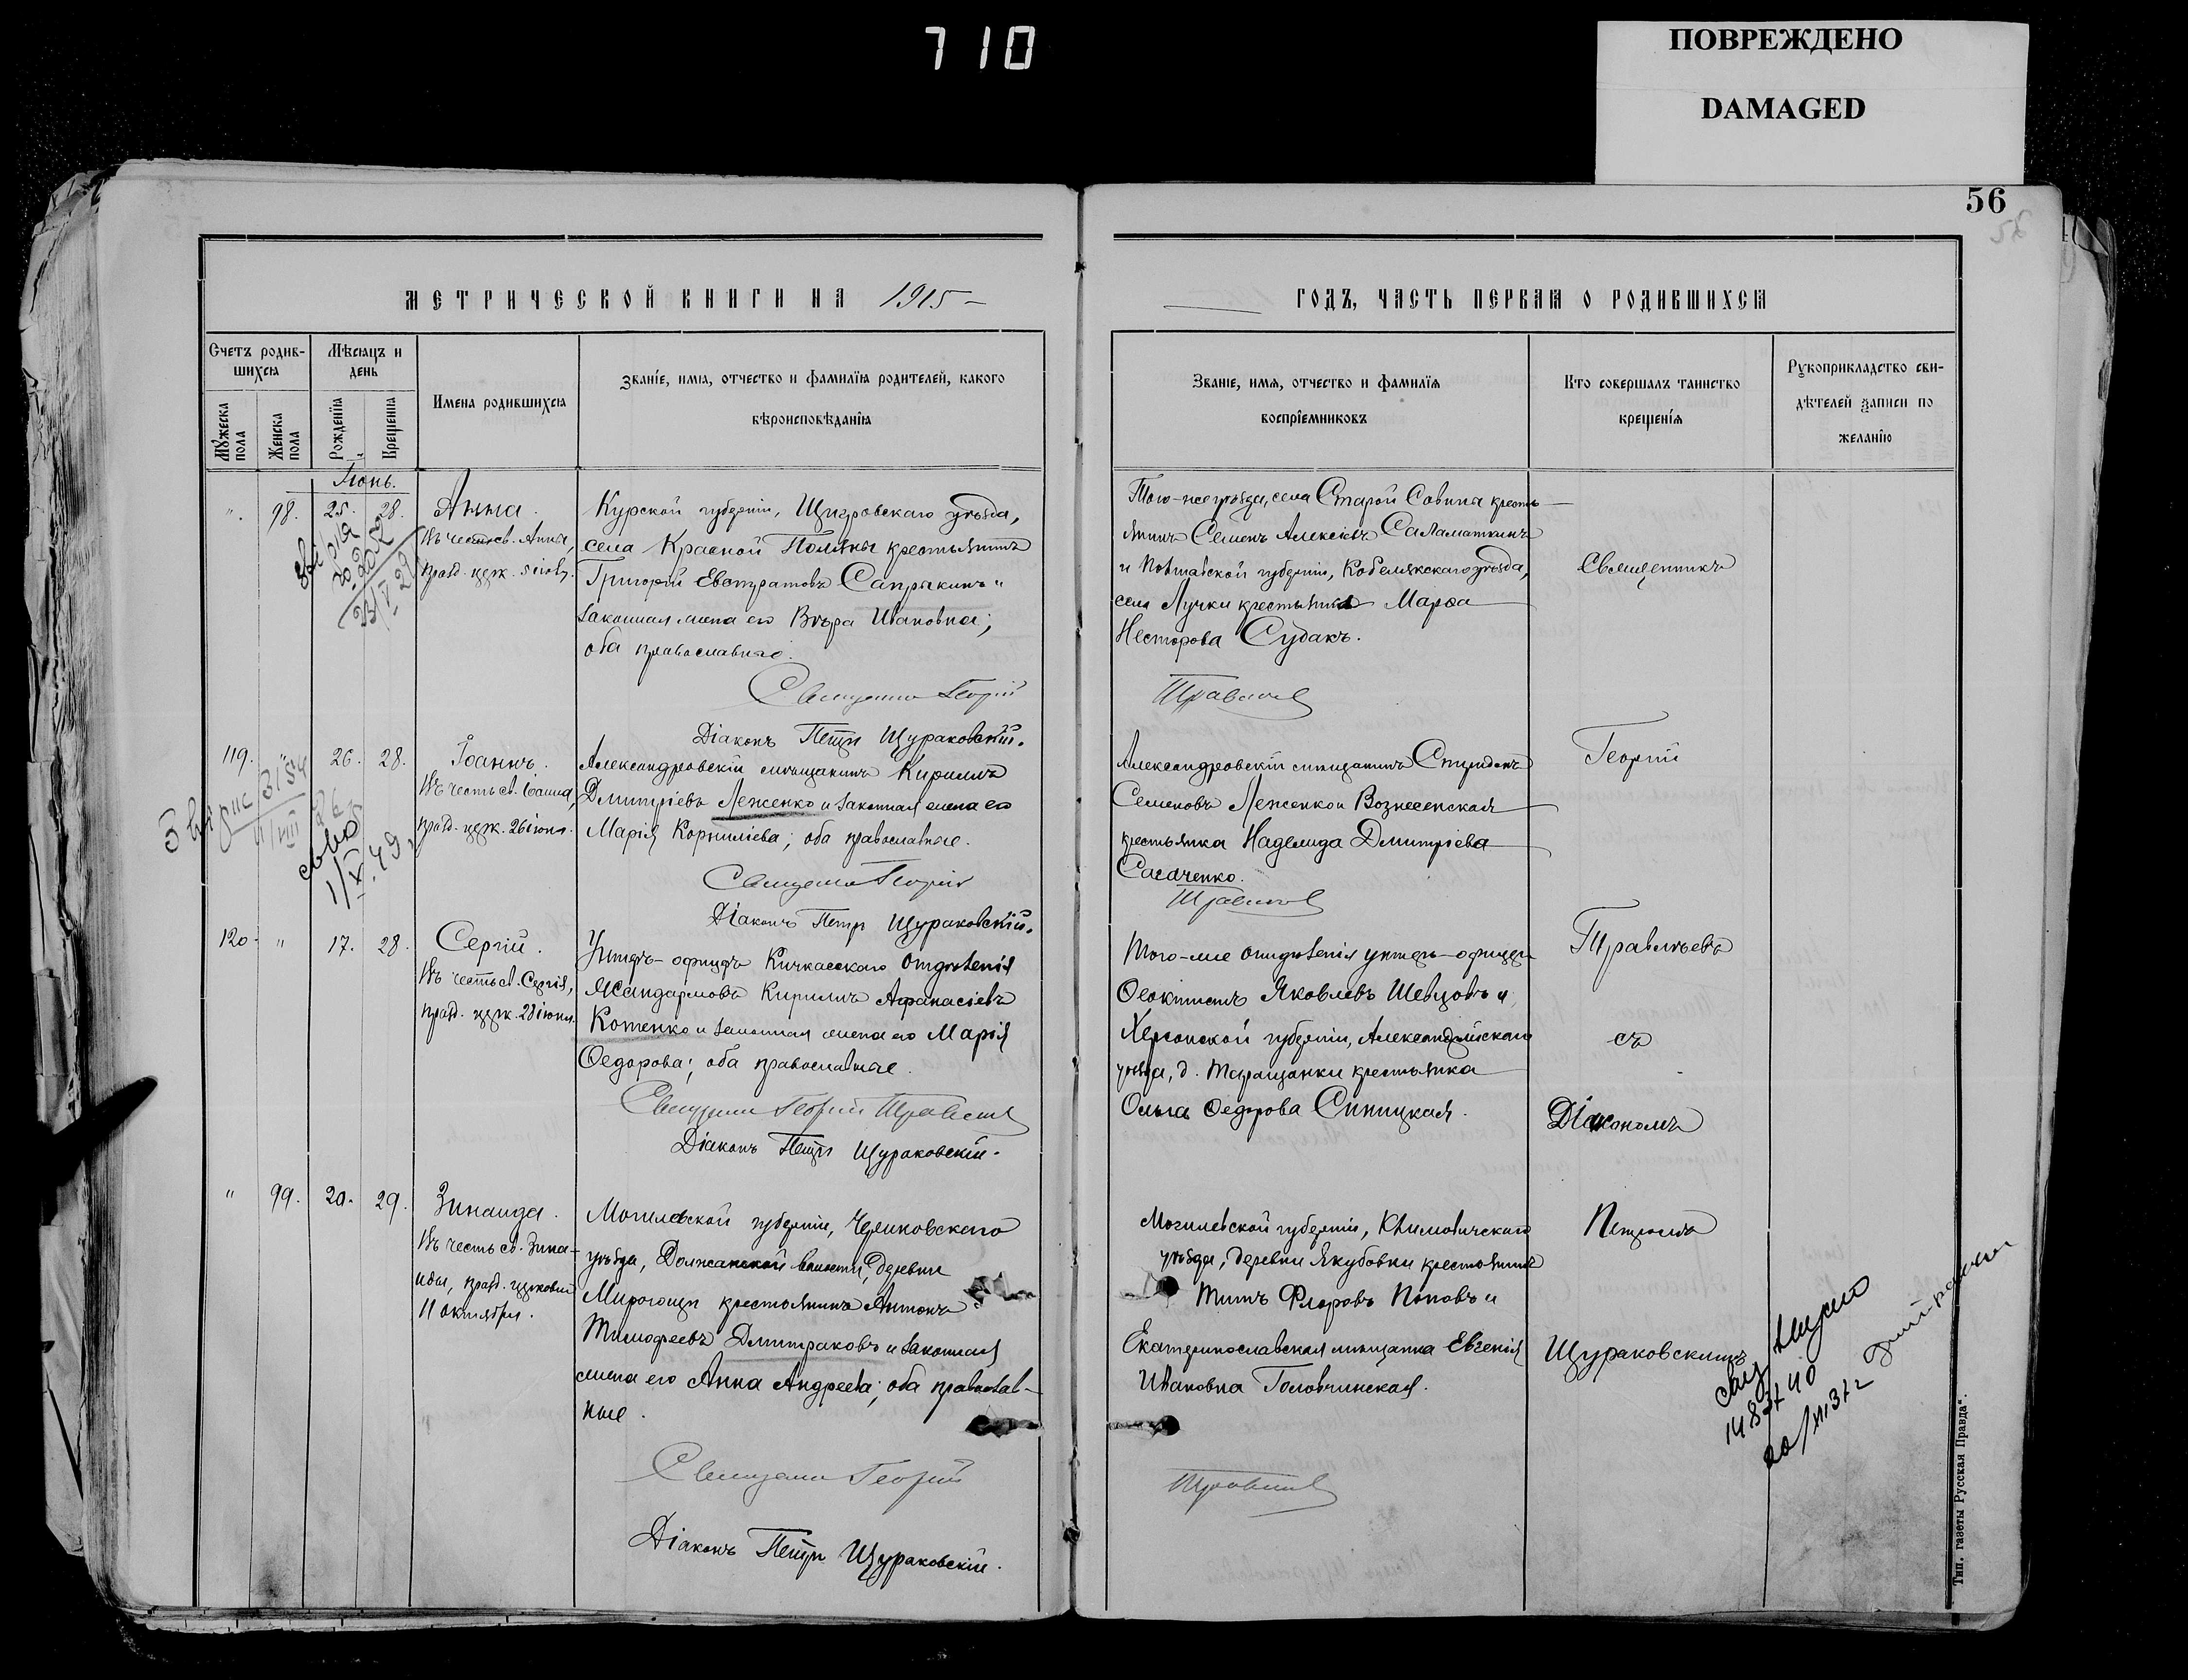 710
ПОВРЕЖДЕНО
DAMAGED
56
МЕТРИЧЕСКОЙ КНИГИ НА 1915
ГОДЪ, ЧАСТЬ ПЕРВАЯ О РОДИВШИХСЯ
Счетъ родив-
шихся
Мѣсяцъ и
день
Мужеска
пола
Женска
пола
Рожденія
Крещенія
Имена родившихся
Званіе, имя, отчество и фамилія родителей, какого
вѣроисповѣданія
Званіе, имя, отчество и фамилія
воспріемниковъ
Кто совершалъ таинство
крещенія
Рукоприкладство сви-
дѣтелей записи по
желанію
Іюнь.
". 98. 25. 28. Анна.
Въ честь св. Анны,
празд. церк.
Курской губерніи, Щигровскаго уѣзда,
села Красной Поляны крестьянинъ
Григорій Евстратовъ Сапрыкинъ и
законная жена его Вѣра Ивановна;
оба православные.
Священникъ Георгій
Діаконъ Петръ Щураковскій.
Того-же уѣзда, села Старой Савины кресть-
янинъ Семенъ Алексѣевъ Саламаткинъ
и Полтавской губерніи, Кобелякскаго уѣзда,
села Лучки крестьянка Марѳа
Несторова Судакъ.
Травлѣевъ
Священникъ
119. " 26. 28. Іоаннъ.
Въ честь св. Іоанна,
празд. церк. 26 іюня.
Александровскій мѣщанинъ Кириллъ
Дмитріевъ Леженко и законная жена его
Марія Корниліева; оба православные.
Священникъ Георгій
Діаконъ Петръ Щураковскій.
Александровскій мѣщанинъ Спиридонъ
Семеновъ Леженко и Вознесенская
крестьянка Надежда Дмитріева
Сасаченко.
Травлѣевъ
Георгій
1/X.49.
120. " 17. 28. Сергій.
Въ честь св. Сергія,
празд. церк. 28 іюня.
Унтеръ-офицеръ Кичкасскаго отдѣленія
жандармовъ Кириллъ Аѳанасіевъ
Котенко и законная жена его Марія
Ѳедорова; оба православные.
Священникъ Георгій Травлѣевъ
Діаконъ Петръ Щураковскій.
Того-же отдѣленія унтеръ-офицеръ
Ѳеоктистъ Яковлевъ Шевцовъ и
Херсонской губерніи, Александрійскаго
уѣзда, д. Таращанки крестьянка
Ольга Ѳедорова Синицкая.
Травлѣевъ
съ
Діакономъ
" 99. 20. 29. Зинаида.
Въ честь св. Зина-
иды, празд. церковью
11 октября.
Могилевской губерніи, Чериковскаго
уѣзда, Должанской волости, деревни
Мирогощи крестьянинъ Антонъ
Тимофеевъ Дмитраковъ и законная
жена его Анна Андреева; оба православ-
ные.
Священникъ Георгій
Діаконъ Петръ Щураковскій.
Могилевской губерніи, Климовичскаго
уѣзда, деревни Якубовки крестьянинъ
Титъ Флоровъ Поповъ и
Екатеринославская мѣщанка Евгенія
Ивановна Головчинская.
Травлѣевъ
Петромъ
Щураковскимъ
Тип. газеты „Русская Правда“.